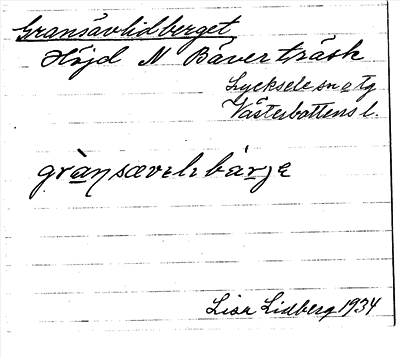 Gransävlidberget
Höjd N Bäverträsk
Lycksele sn o tg
Västerbottens l.
gràn̥sævlɩbár̥jɛ
Lisa Lidberg 1934